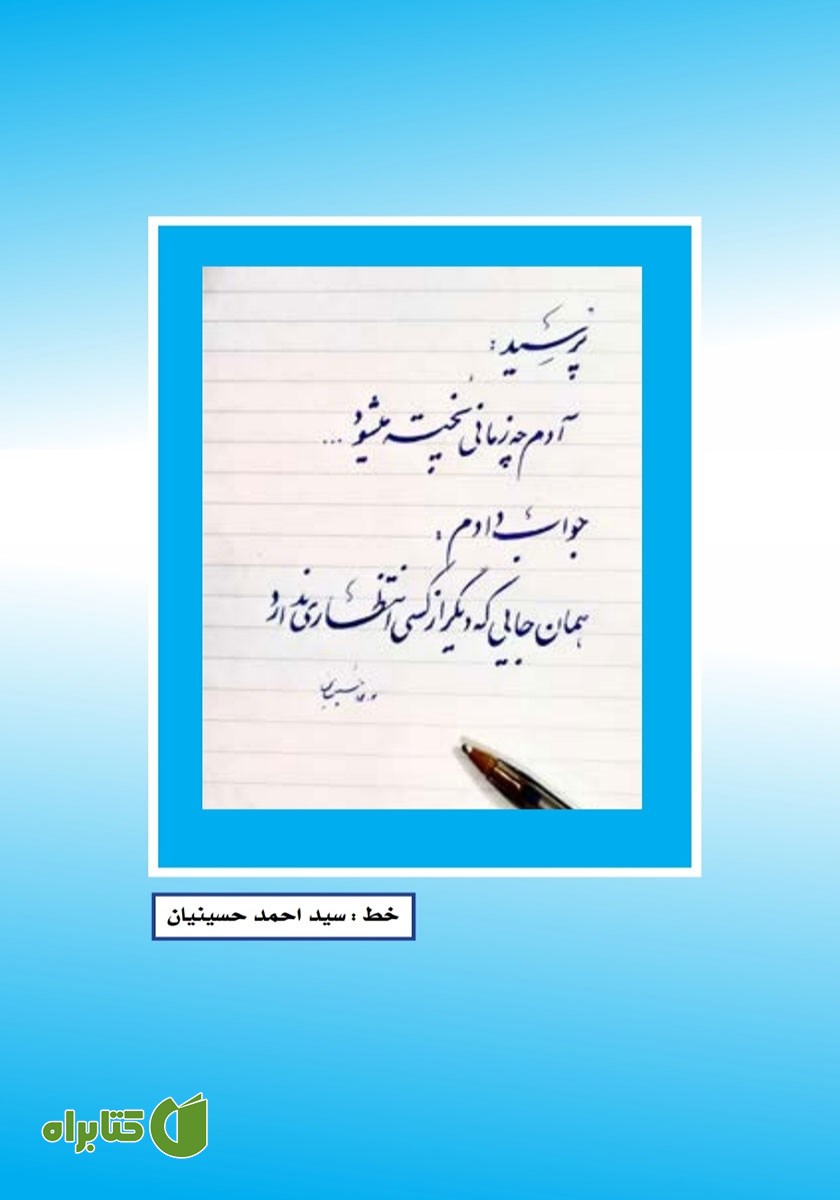 پرسید :
آدم چه زمانی پخته میشود ...
جواب دادم :
همان جایی که دیگر از کسی انتظاری ندارد
خط : سید احمد حسینیان
کتابراه